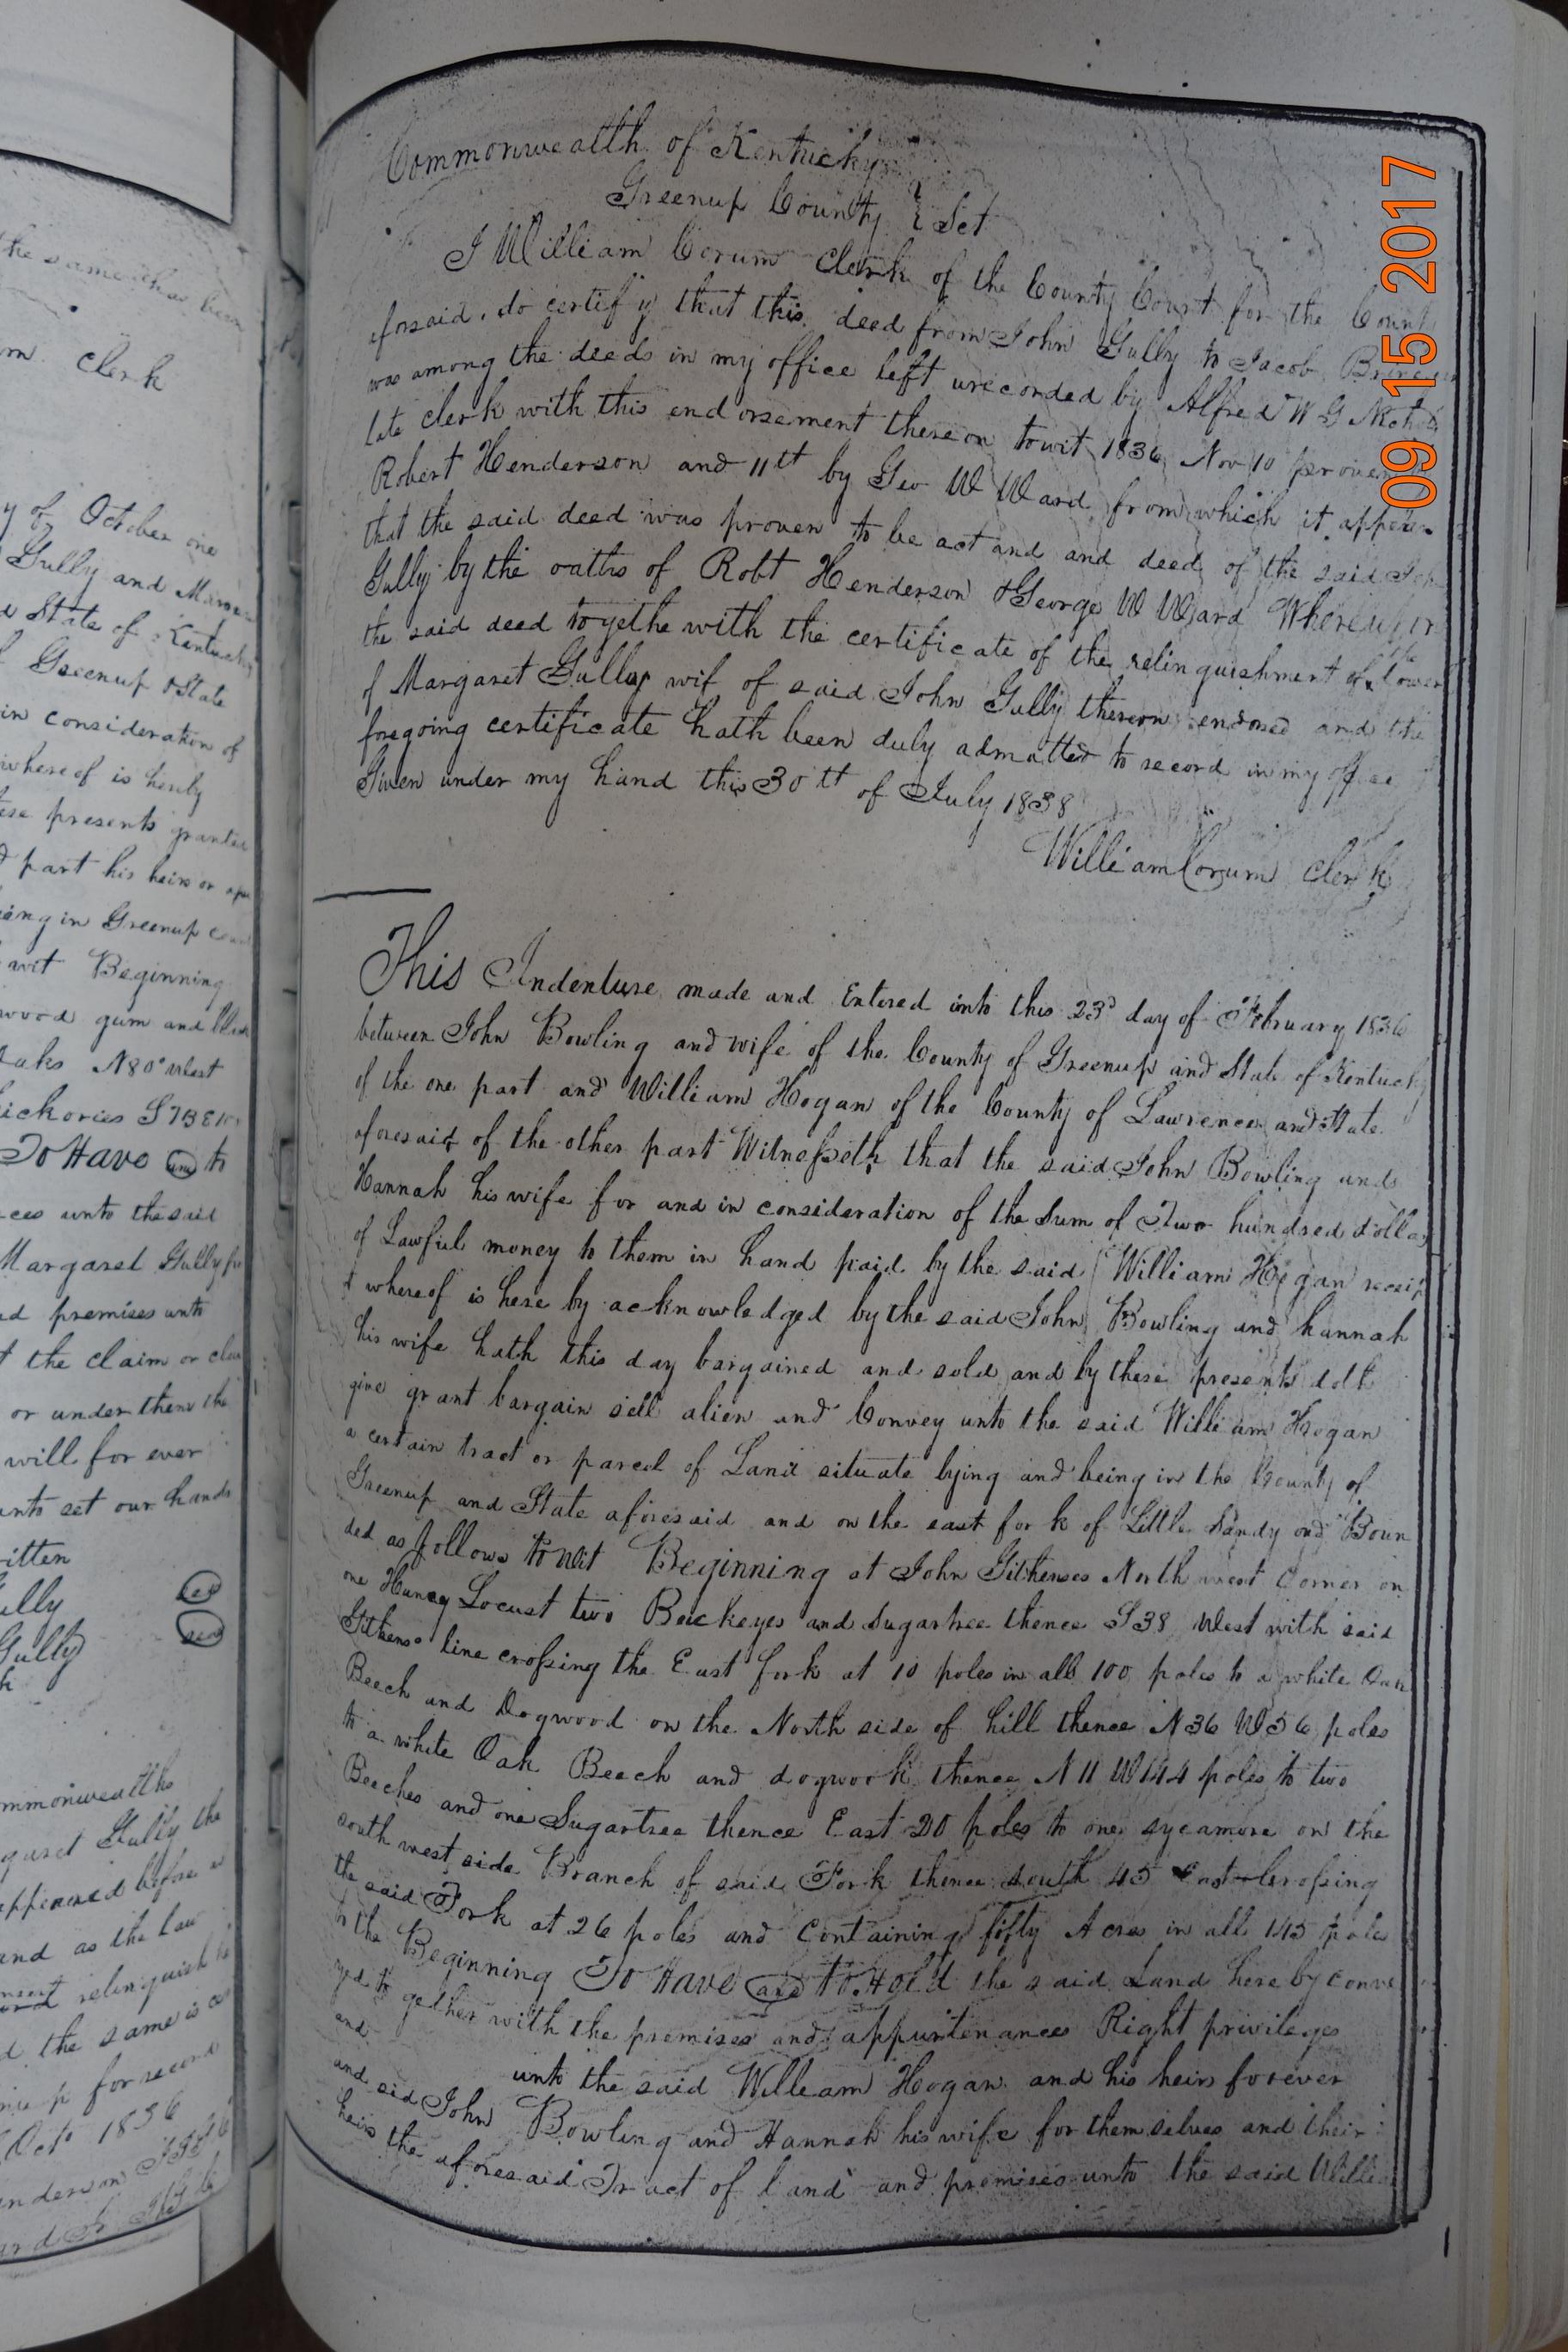 the same has been
m. Clerk
y of October one
Gully and
State of Kentucky
Greenup & State
in consideration of
whereof is hereby
ese presents granted
part his heirs or
ing in Greenup
wit Beginning
wood gum and
oaks N80° West
ickories S
To Have and to
ces unto the said
Margaret Gully for
nd premises unto
t the claim or
or under them the
will for ever
unto set our hands
ritten
ully seal
Gully seal
mmonwealths
garet Gully the
appeared before
and as the law
relinquish
d the same is
for record
Octo 1836
Commonwealth of Kentucky
Greenup County } Sct
I William Corum Clerk of the County Court for the Count
aforsaid, do certify that this deed from John Gully to Jacob
was among the deeds in my office left urecorded by Alfred W G Nichols
late clerk with this endorsement thereon towit 1836 Nov 10 proven
Robert Henderson and 11th by Geo W Ward from which it appears
that the said deed was proven to be act and and deed of the said
Gully by the oaths of Robt Henderson & George W Ward Whereupon
the said deed togethe with the certificate of the relinquishment of the dower
of Margaret Gully wif of said John Gully thereon endorsed and the
foregoing certificate hath been duly admatted to record in my office
Given under my hand this 30th of July 1838
William Corum Clerk
This Indenture made and Entered into this 23d day of February 1836
between John Bowling and wife of the County of Greenup and State of Kentucky
of the one part and William Hogan of the County of Lawrence and State
aforesaid of the other part Witnesseth that the said John Bowling and
Hannah his wife for and in consideration of the Sum of Two hundred dollas
of Lawful money to them in hand paid by the said William Hogan receip
t whereof is here by acknowledged by the said John Bowling and hannah
his wife hath this day bargained and sold and by these presents doth
give grant bargain sell alien and Convey unto the said William Hogan
a certain tract or parcel of Land situate lying and being in the County of
Greenup and State aforesaid and on the east fork of Little Sandy and Boun
ded as follows to wit Beginning at John Githenses North west Corner on
one Huney Locust two Buckeyes and Sugartree thence S38 West with said
Githens line crossing the East fork at 10 poles in all 100 poles to a white Oak
Beech and Dogwood on the North side of hill thence N36 W56 poles
to a white Oak Beech and dogwook thence N11 W144 poles to two
Beeches and one Sugartree thence East 20 poles to one sycamore on the
south west side Branch of said Fork thence south 45 East Crossing
the said Fork at 26 poles and Containing fifty Acres in all 145 poles
to the Beginning To Have and to Hold the said Land here by conve
yed to gether with the premises and appurtenances Right privileges
and unto the said William Hogan and his heirs forever
and said John Bowling and Hannah his wife for themselves and their
heirs the aforesaid Tract of land and premises unto the said Willia
09 15 2017